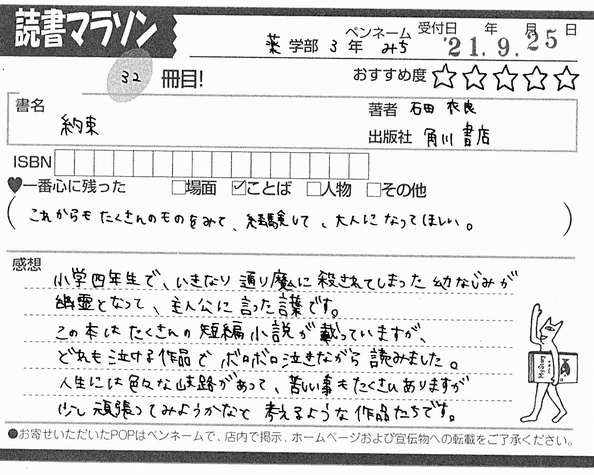 読書マラソン
薬 学部 3 年 ペンネーム みち 受付日 年 月 日
'21.9.25
32 冊目!
おすすめ度 ☆☆☆☆☆
書名 約束
著者 石田 衣良
出版社 角川書店
ISBN
♥一番心に残った □場面 ☑ことば □人物 □その他
(これからもたくさんのものをみて、経験して、大人になってほしい。)
感想
小学四年生で、いきなり通り魔に殺されてしまった幼なじみが
幽霊となって、主人公に言った言葉です。
この本はたくさんの短編小説が載っていますが、
どれも泣ける作品でボロボロ泣きながら読みました。
人生には色々な岐路があって、苦しい事もたくさんありますが
少し頑張ってみようかなと考えるような作品たちです。
●お寄せいただいたPOPはペンネームで、店内で掲示、ホームページおよび宣伝物への転載をご了承ください。